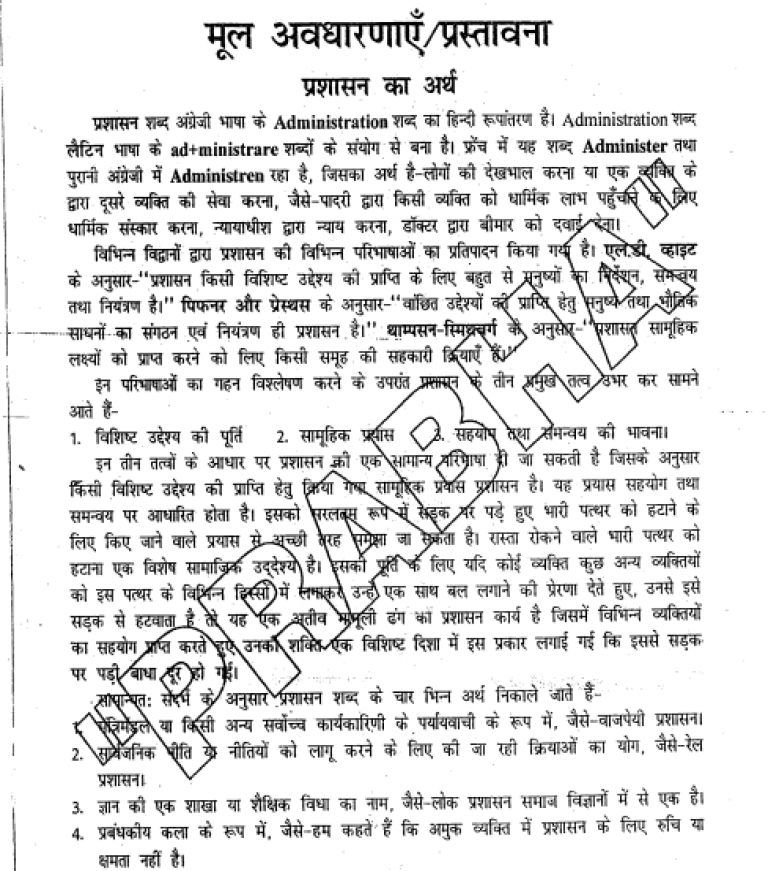 मूल अवधारणाएँ/प्रस्तावना
प्रशासन का अर्थ
प्रशासन शब्द अंग्रेजी भाषा के Administration शब्द का हिन्दी रूपांतरण है। Administration शब्द
लैटिन भाषा के ad+ministrare शब्दों के संयोग से बना है। फ्रेंच में यह शब्द Administer तथा
पुरानी अंग्रेजी में Administren रहा है, जिसका अर्थ है-लोगों की देखभाल करना या एक व्यक्ति के
द्वारा दूसरे व्यक्ति की सेवा करना, जैसे-पादरी द्वारा किसी व्यक्ति को धार्मिक लाभ पहुँचाने के लिए
धार्मिक संस्कार करना, न्यायाधीश द्वारा न्याय करना, डॉक्टर द्वारा बीमार को दवाई देना।
विभिन्न विद्वानों द्वारा प्रशासन की विभिन्न परिभाषाओं का प्रतिपादन किया गया है। एल.डी. व्हाइट
के अनुसार-"प्रशासन किसी विशिष्ट उद्देश्य की प्राप्ति के लिए बहुत से मनुष्यों का निर्देशन, समन्वय
तथा नियंत्रण है।" पिफनर और प्रेस्थस के अनुसार-"वांछित उद्देश्यों की प्राप्ति हेतु मनुष्य तथा भौतिक
साधनों का संगठन एवं नियंत्रण ही प्रशासन है।" थाम्पसन-स्मिथबर्ग के अनुसार-"प्रशासन सामूहिक
लक्ष्यों को प्राप्त करने को लिए किसी समूह की सहकारी क्रियाएँ हैं।"
इन परिभाषाओं का गहन विश्लेषण करने के उपरांत प्रशासन के तीन प्रमुख तत्व उभर कर सामने
आते हैं-
1. विशिष्ट उद्देश्य की पूर्ति 2. सामूहिक प्रयास 3. सहयोग तथा समन्वय की भावना।
इन तीन तत्वों के आधार पर प्रशासन की एक सामान्य परिभाषा दी जा सकती है जिसके अनुसार
किसी विशिष्ट उद्देश्य की प्राप्ति हेतु किया गया सामूहिक प्रयास प्रशासन है। यह प्रयास सहयोग तथा
समन्वय पर आधारित होता है। इसको सरलतम रूप में सड़क पर पड़े हुए भारी पत्थर को हटाने के
लिए किए जाने वाले प्रयास से अच्छी तरह समझा जा सकता है। रास्ता रोकने वाले भारी पत्थर को
हटाना एक विशेष सामाजिक उद्देश्य है। इसकी पूर्ति के लिए यदि कोई व्यक्ति कुछ अन्य व्यक्तियों
को इस पत्थर के विभिन्न हिस्सों में लगाकर उन्हें एक साथ बल लगाने की प्रेरणा देते हुए, उनसे इसे
सड़क से हटवाता है तो यह एक अतीव मामूली ढंग का प्रशासन कार्य है जिसमें विभिन्न व्यक्तियों
का सहयोग प्राप्त करते हुए उनकी शक्ति एक विशिष्ट दिशा में इस प्रकार लगाई गई कि इससे सड़क
पर पड़ी बाधा दूर हो गई।
सामान्यत: संदर्भ के अनुसार प्रशासन शब्द के चार भिन्न अर्थ निकाले जाते हैं-
1. मंत्रिमंडल या किसी अन्य सर्वोच्च कार्यकारिणी के पर्यायवाची के रूप में, जैसे-वाजपेयी प्रशासन।
2. सार्वजनिक नीति या नीतियों को लागू करने के लिए की जा रही क्रियाओं का योग, जैसे-रेल
प्रशासन।
3. ज्ञान की एक शाखा या शैक्षिक विधा का नाम, जैसे-लोक प्रशासन समाज विज्ञानों में से एक है।
4. प्रबंधकीय कला के रूप में, जैसे-हम कहते हैं कि अमुक व्यक्ति में प्रशासन के लिए रुचि या
क्षमता नहीं है।
"PRABHAT"